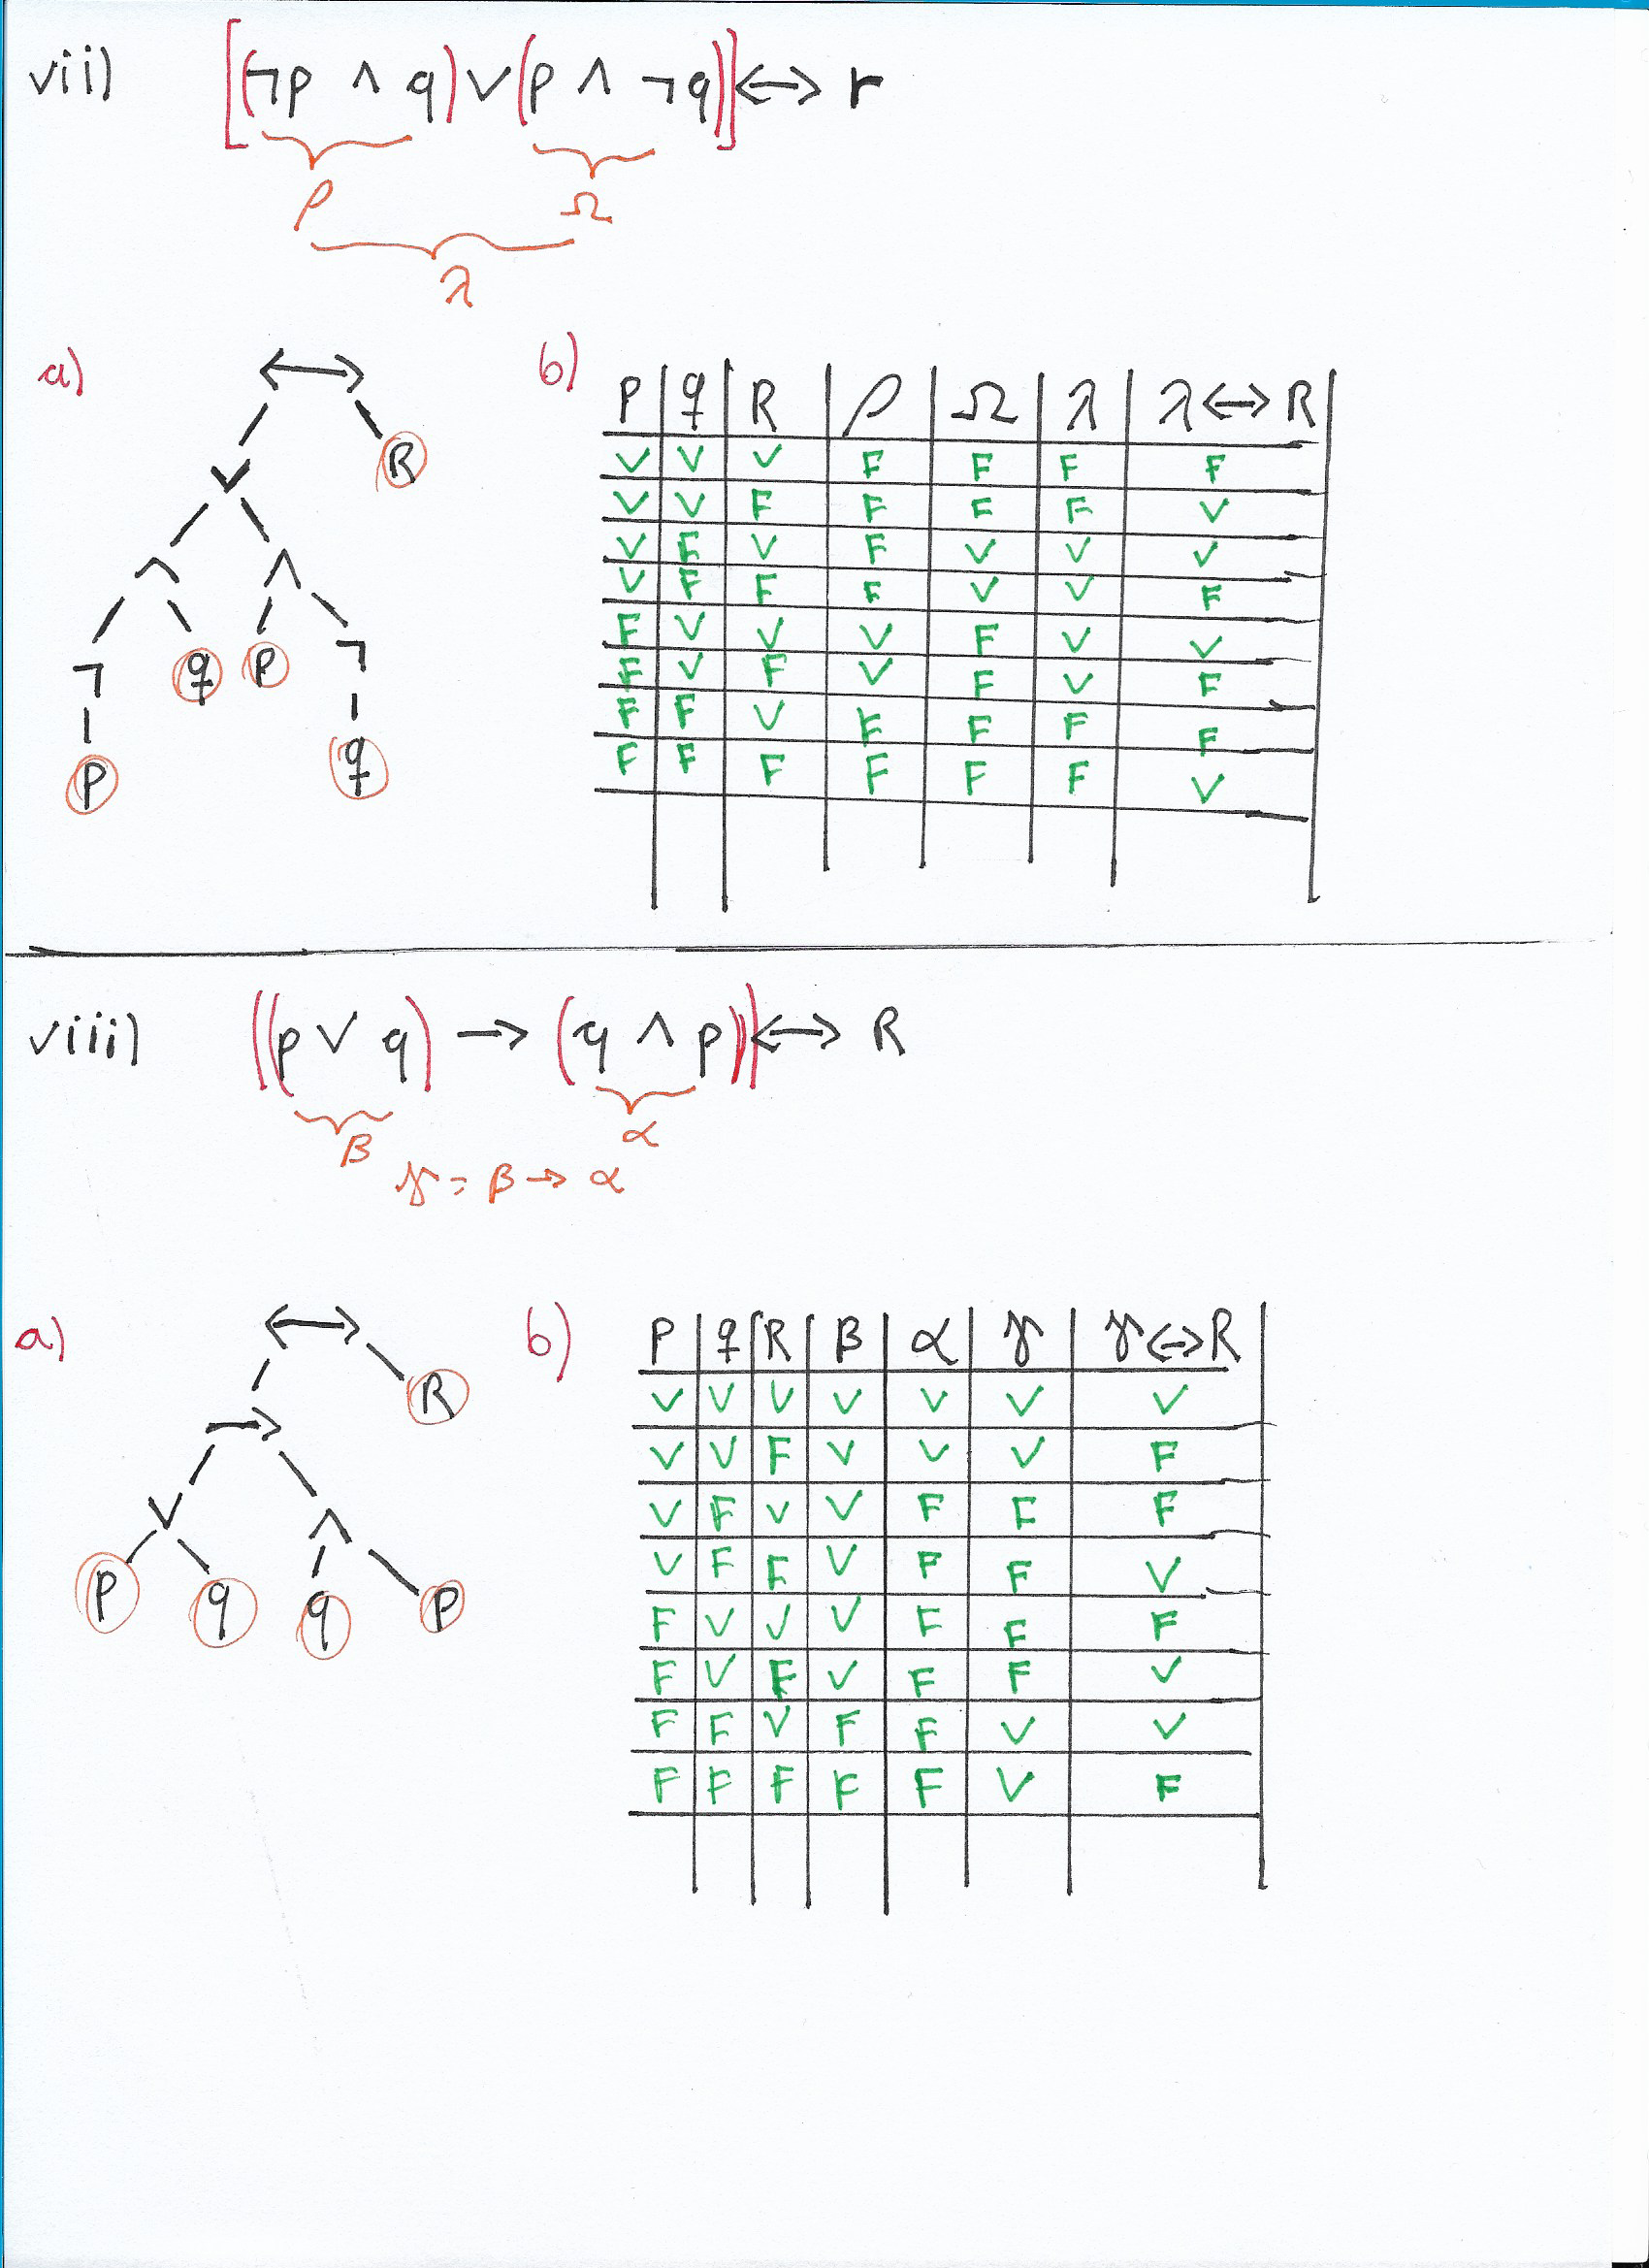 vii) [(¬p ∧ q) ∨ (p ∧ ¬q)] ↔ r
ρ Ω
λ
a)
↔
∨ R
∧ ∧
¬ q p ¬
p q
b)
P q R ρ Ω λ λ↔R
V V V F F F F
V V F F F F V
V F V F V V V
V F F F V V F
F V V V F V V
F V F V F V F
F F V F F F F
F F F F F F V
viii) ((p ∨ q) → (q ∧ p)) ↔ R
β α
γ = β → α
a)
↔
R
→
∨ ∧
p q q p
b)
P q R β α γ γ↔R
V V V V V V V
V V F V V V F
V F V V F F F
V F F V F F V
F V V V F F F
F V F V F F V
F F V F F V V
F F F F F V F